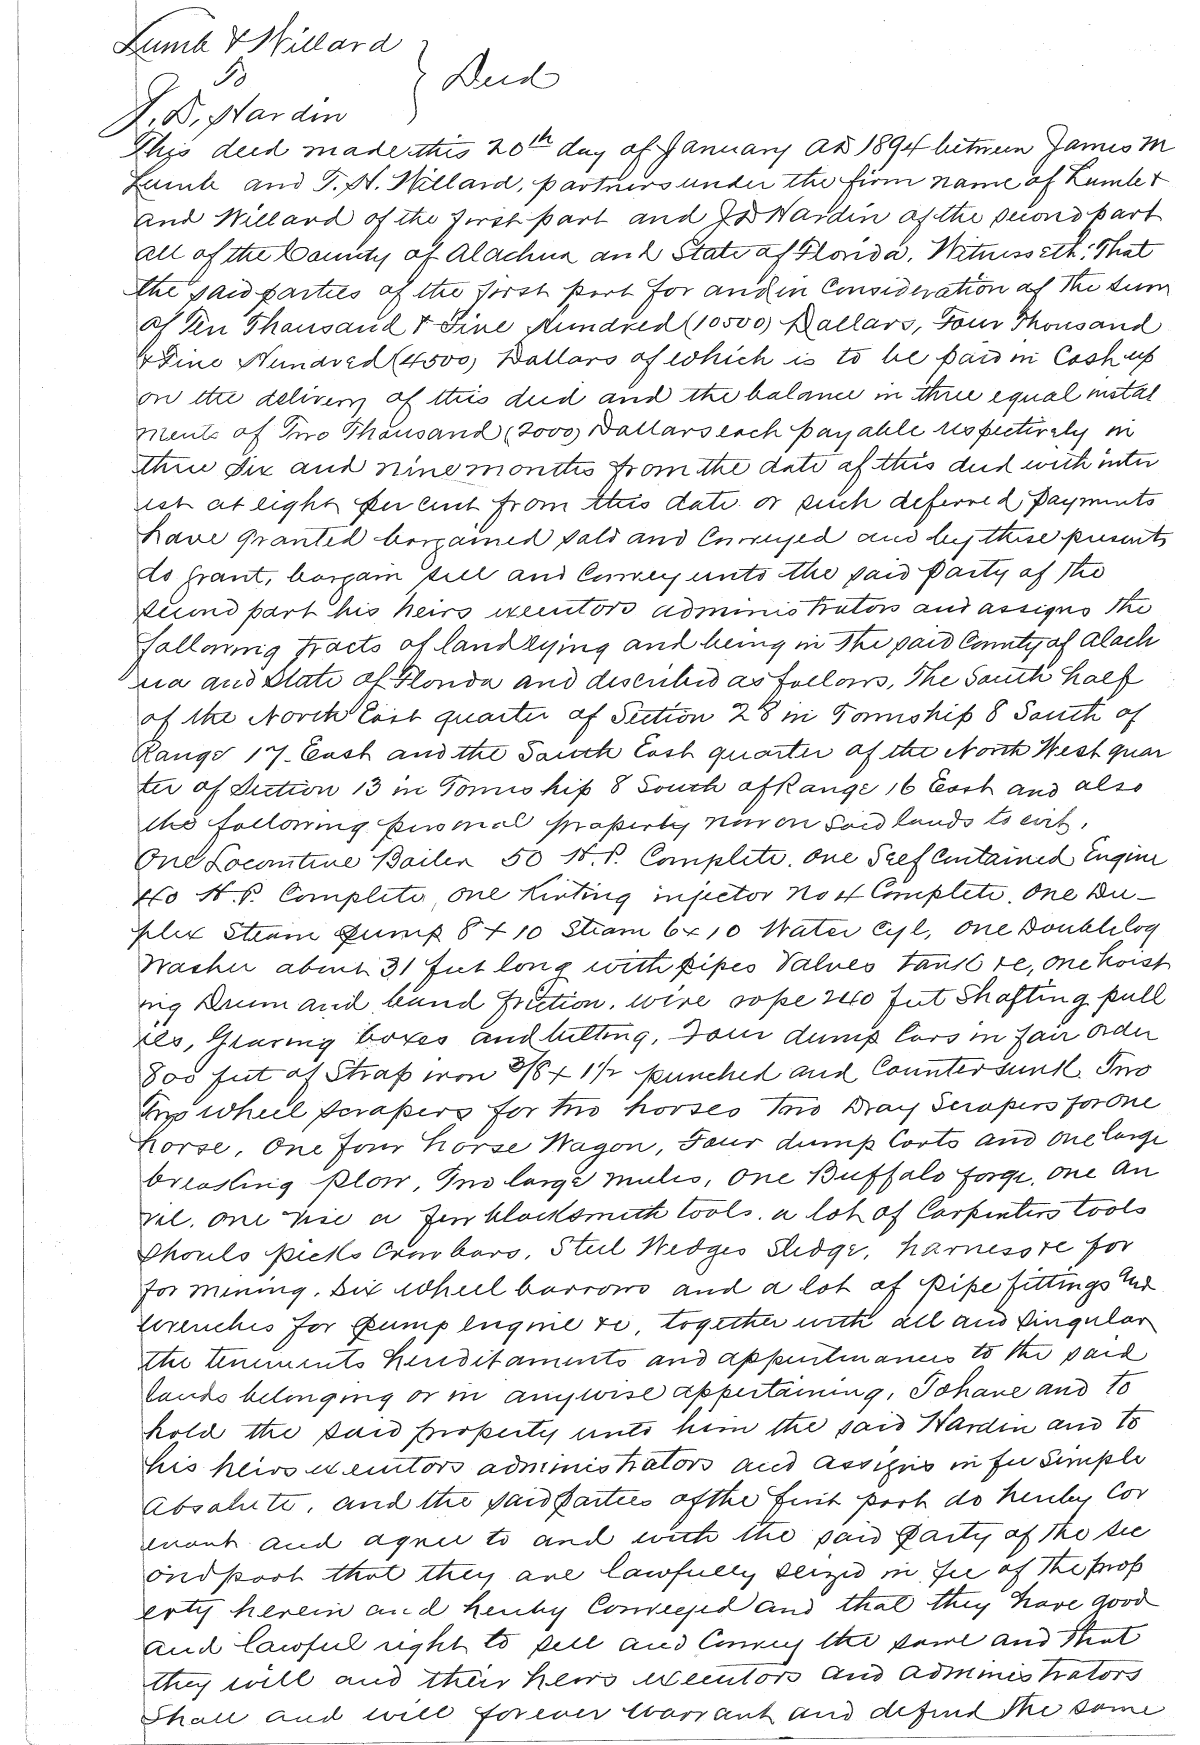 Lumb & Willard
To } Deed
J. D. Hardin
This deed made this 20th day of January AD 1894 between James M
Lumb and T. H. Willard, partners under the firm name of Lumb &
and Willard of the first part and J D Hardin of the second part
all of the County of Alachua and State of Florida, Witnesseth: That
the said parties of the first part for and in Consideration of the sum
of Ten Thousand & Five Hundred (10500) Dollars, Four Thousand
& Five Hundred (4500) Dollars of which is to be paid in Cash up
on the delivery of this deed and the balance in three equal instal
ments of Two Thousand (2000) Dollars each payable respectively in
three six and nine months from the date of this deed with inter
est at eight per cent from this date or such deferred payments
have granted bargained sold and Conveyed and by these presents
do grant, bargain sell and Convey unto the said party of the
second part his heirs executors administrators and assigns the
following tracts of land lying and being in the said County of Alach
ua and State of Florida and described as follows, The South half
of the North East quarter of Section 28 in Township 8 South of
Range 17 East and the South East quarter of the North West quar
ter of Section 13 in Township 8 South of Range 16 East and also
the following personal property now on said lands to wit,
One Locomtive Boiler 50 H.P. Complete. One Self Contained Engine
40 H.P. Complete, one injector No 4 Complete. One Du-
plex Steam pump 8 x 10 Steam 6 x 10 Water Cyl, One Double log
Washer about 31 feet long with pipes Valves tank &c, one hoist
ing Drum and band friction. wire rope 240 feet Shafting pull
ies, Gearing boxes and belting, Four dump Cars in fair order
800 feet of Strap iron 3/8 x 1 1/2 punched and Countersunk. Two
Two wheel scrapers for two horses two Dray Scrapers for one
horse, One four horse Wagon, Four dump Carts and one large
breaking plow, Two large mules, One Buffalo forge, one an
vil. one vise a few blacksmith tools. a lot of Carpenters tools
Shovels picks Crow bars, Steel Wedges Sledge, harness &c for
for mining. Six wheel barrows and a lot of pipe fittings and
wrenches for pump engine &c, together with all and singular
the tenements hereditaments and appurtenances to the said
lands belonging or in anywise appertaining, To have and to
hold the said property unto him the said Hardin and to
his heirs executors administrators and assigns in fee Simple
absolute, and the said parties of the first part do hereby Cov
enant and agree to and with the said party of the sec
ond part that they are lawfully seized in fee of the prop
erty herein and hereby Conveyed and that they have good
and lawful right to sell and Convey the same and that
they will and their heirs executors and administrators
Shall and will forever warrant and defend the same